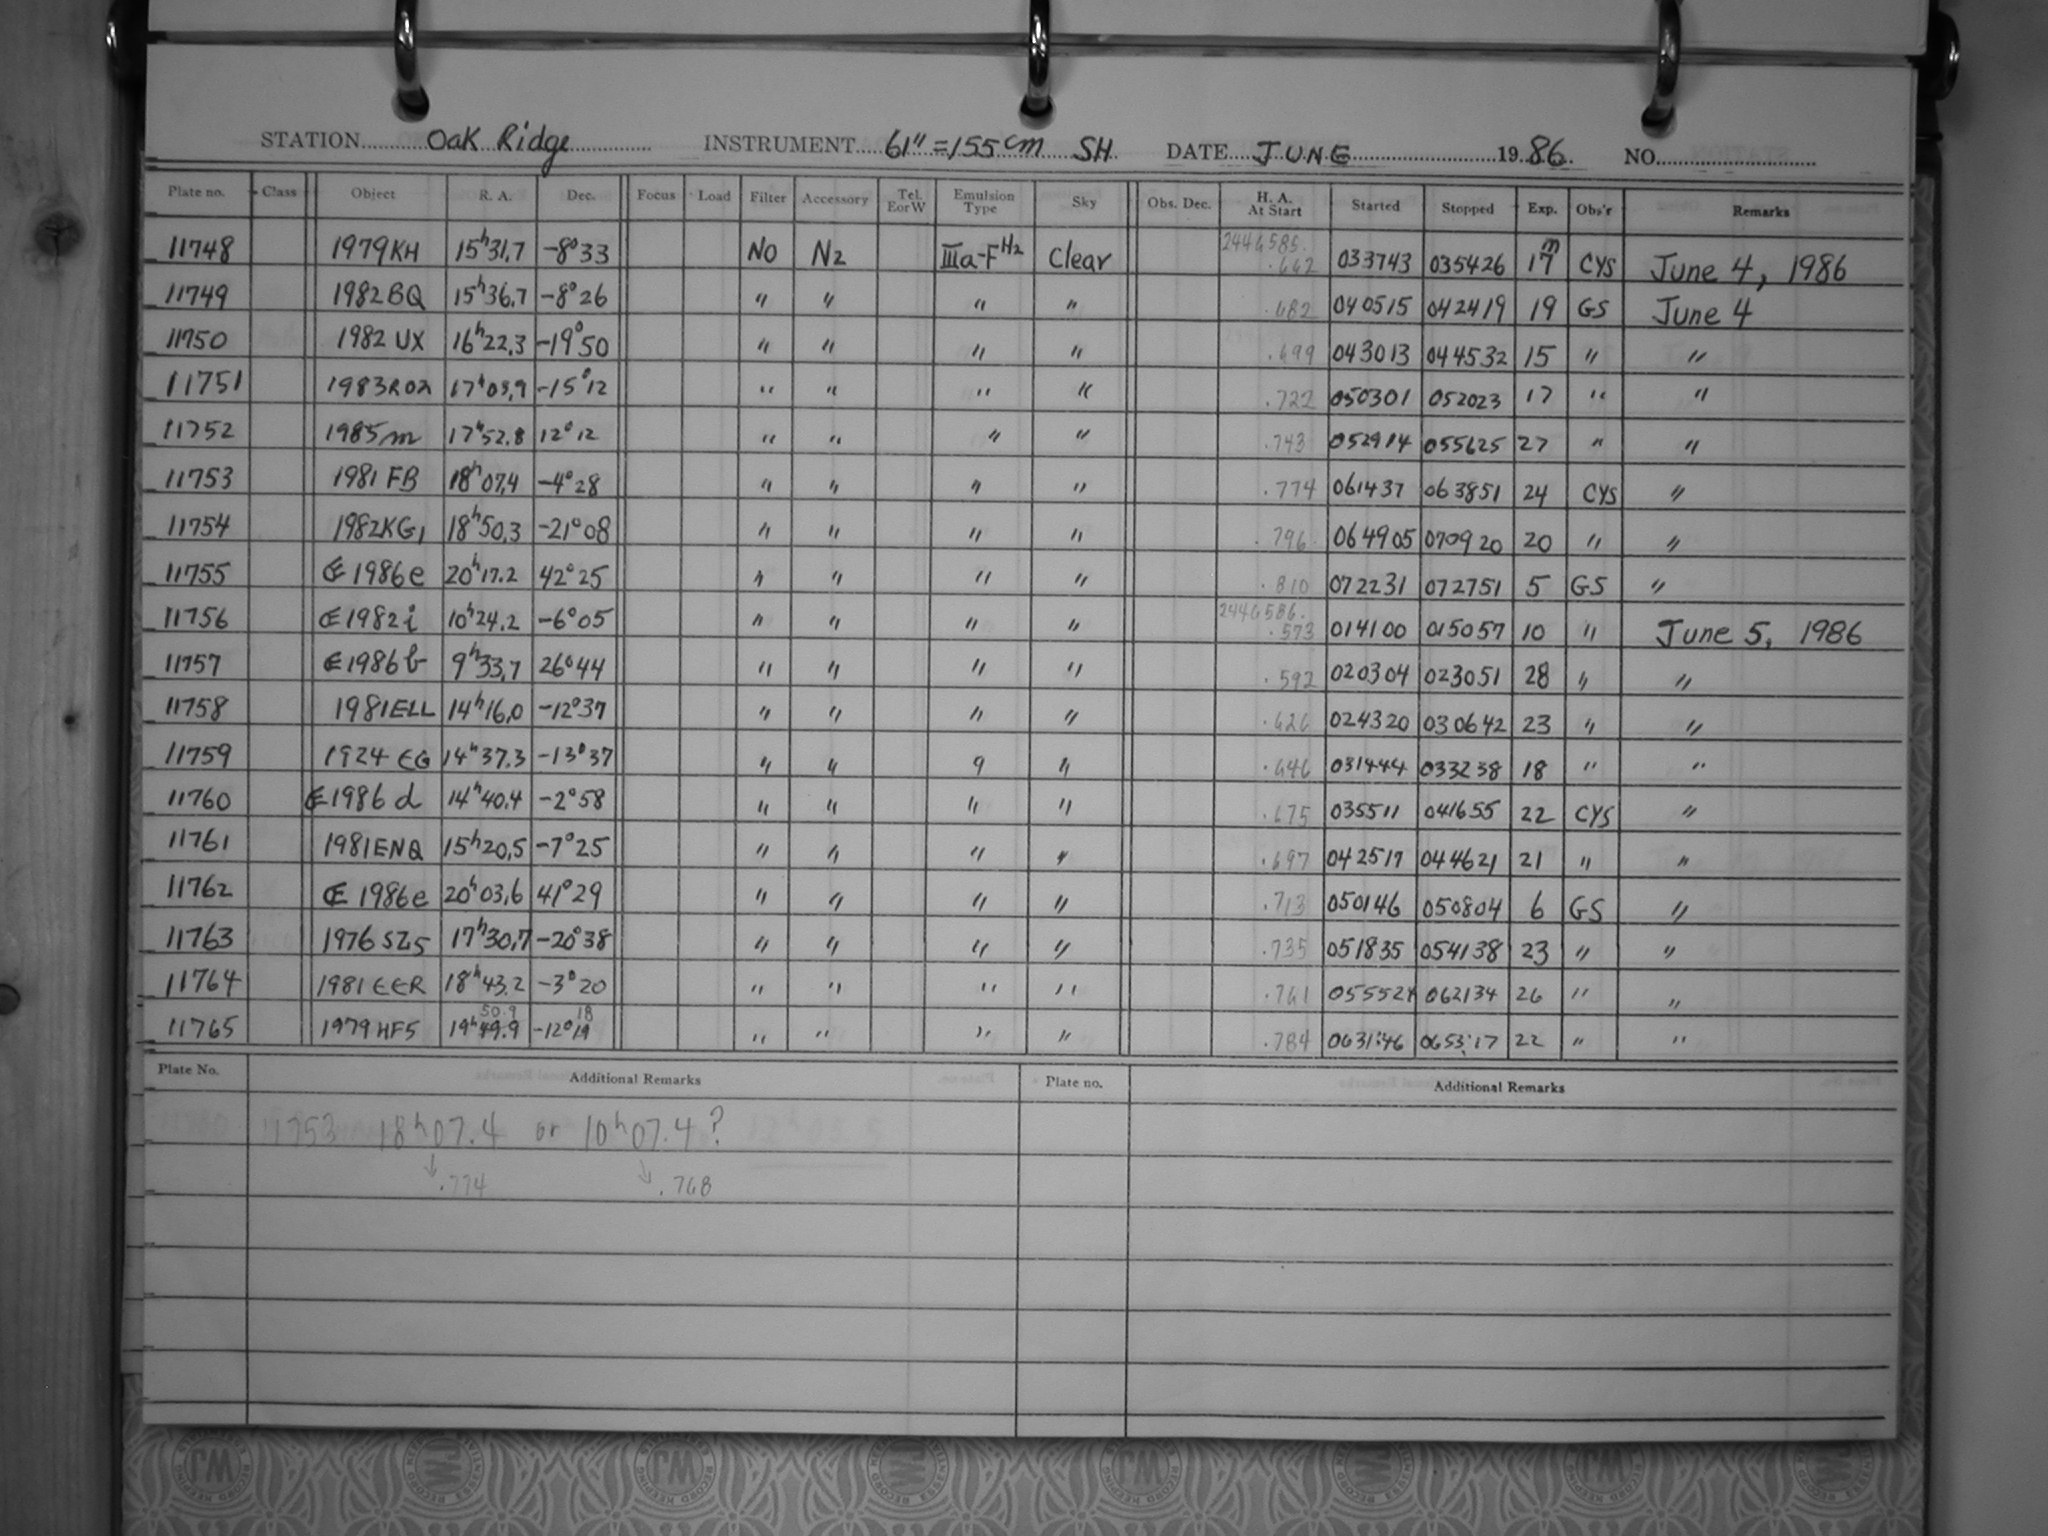 STATION Oak Ridge INSTRUMENT 61"=155cm SH DATE JUNE 1986 NO.
Plate no. Class Object R. A. Dec. Focus Load Filter Accessory Tel. E or W Emulsion Type Sky Obs. Dec. H. A. At Start Started Stopped Exp. Obs'r Remarks
11748 1979KH 15h31,7 -8°33 NO N2 IIIa-F H2 Clear 2446585. .662 033743 035426 17m CYS June 4, 1986
11749 1982BQ 15h36,7 -8°26 " " " " .682 040515 042419 19 GS June 4
11750 1982 UX 16h22,3 -19°50 " " " " .699 043013 044532 15 " "
11751 1983RO2 17h03,9 -15°12 " " " " .722 050301 052023 17 " "
11752 1985m 17h52.8 12°12 " " " " .743 052914 055625 27 " "
11753 1981 FB 18h07,4 -4°28 " " " " .774 061437 063851 24 CYS "
11754 1982KG1 18h50,3 -21°08 " " " " .796 064905 070920 20 " "
11755 ₠ 1986e 20h17.2 42°25 " " " " .810 072231 072751 5 GS "
11756 ₠ 1982i 10h24,2 -6°05 " " " " 2446586. .573 014100 015057 10 " June 5, 1986
11757 ₠ 1986b 9h33,7 26°44 " " " " .592 020304 023051 28 " "
11758 1981ELL 14h16,0 -12°37 " " " " .626 024320 030642 23 " "
11759 1924 EG 14h37.3 -13°37 " " " " .646 031444 033238 18 " "
11760 ₠ 1986 d 14h40.4 -2°58 " " " " .675 035511 041655 22 CYS "
11761 1981ENQ 15h20,5 -7°25 " " " " .697 042517 044621 21 " "
11762 ₠ 1986e 20h03,6 41°29 " " " " .713 050146 050804 6 GS "
11763 1976 SZ5 17h30,7 -20°38 " " " " .735 051835 054138 23 " "
11764 1981 EER 18h43.2 -3°20 " " " " .761 055524 062134 26 " "
50.9 18
11765 1979 HF5 19h49.9 -12°19 " " " " .784 0631:46 0653:17 22 " "
Plate No. Additional Remarks Plate no. Additional Remarks
11753 18h07.4 or 10h07.4?
↓ .774 ↘ .768